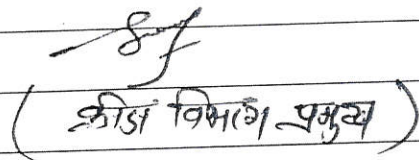 ( क्रीडा विभाग प्रमुख )